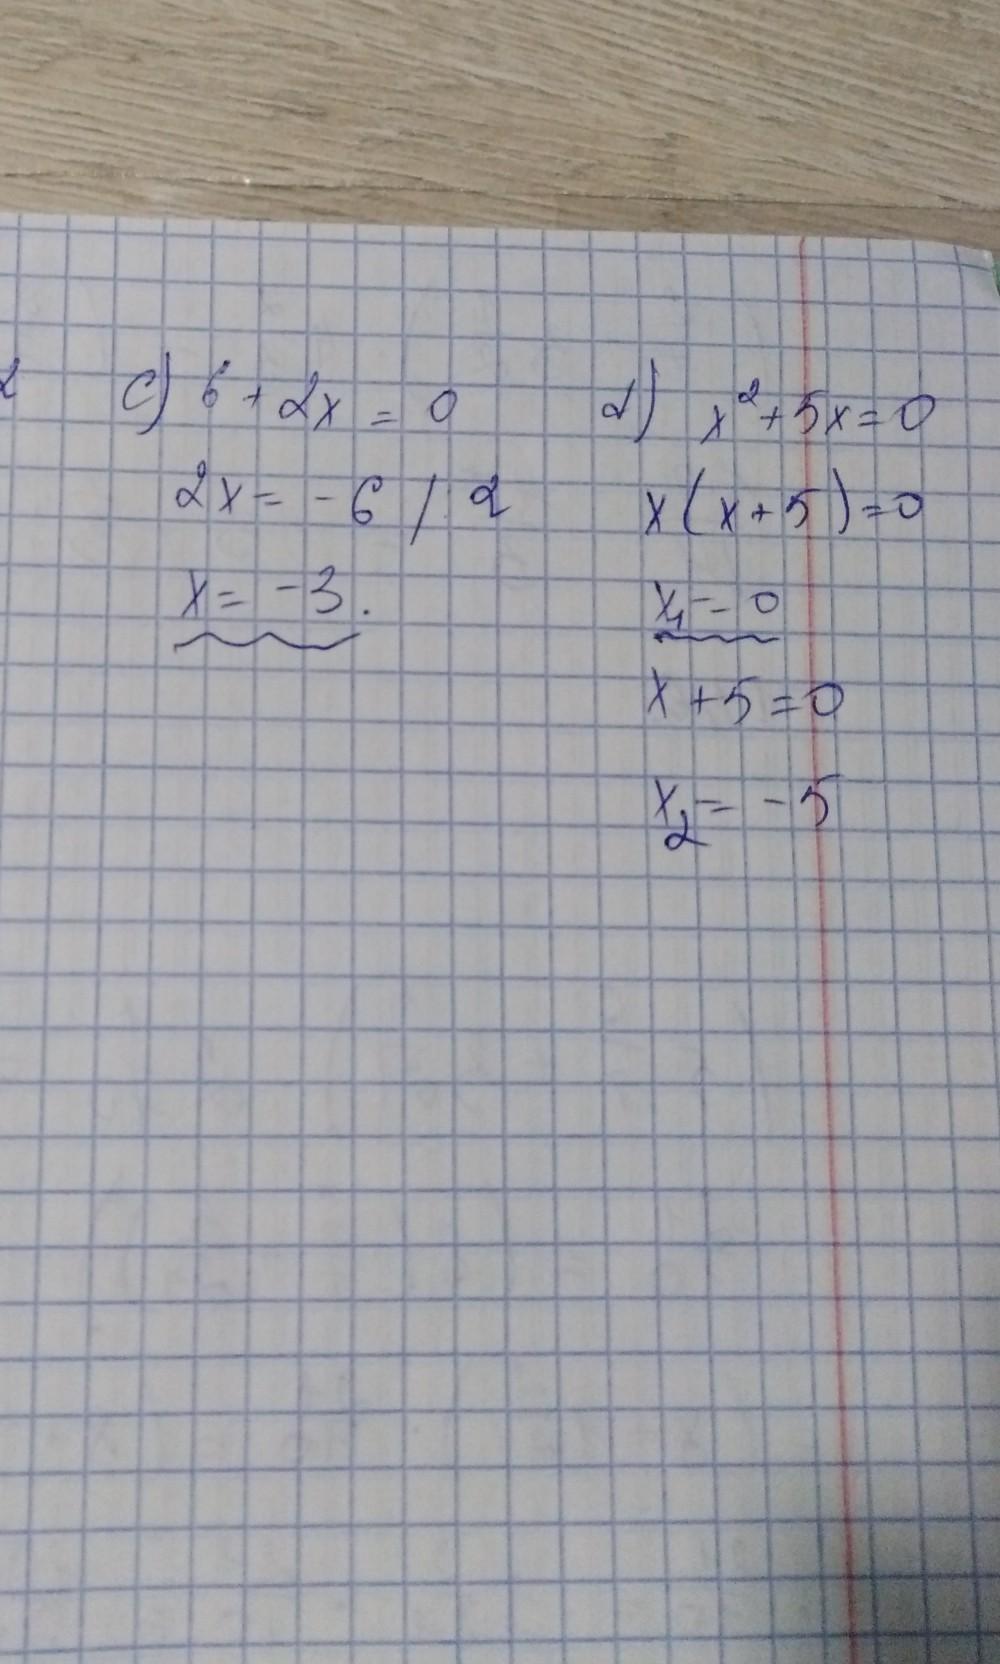 2
c) 6 + 2x = 0
2x = -6 / : 2
x = -3.
d) x² + 5x = 0
x(x + 5) = 0
x₁ = 0
x + 5 = 0
x₂ = -5